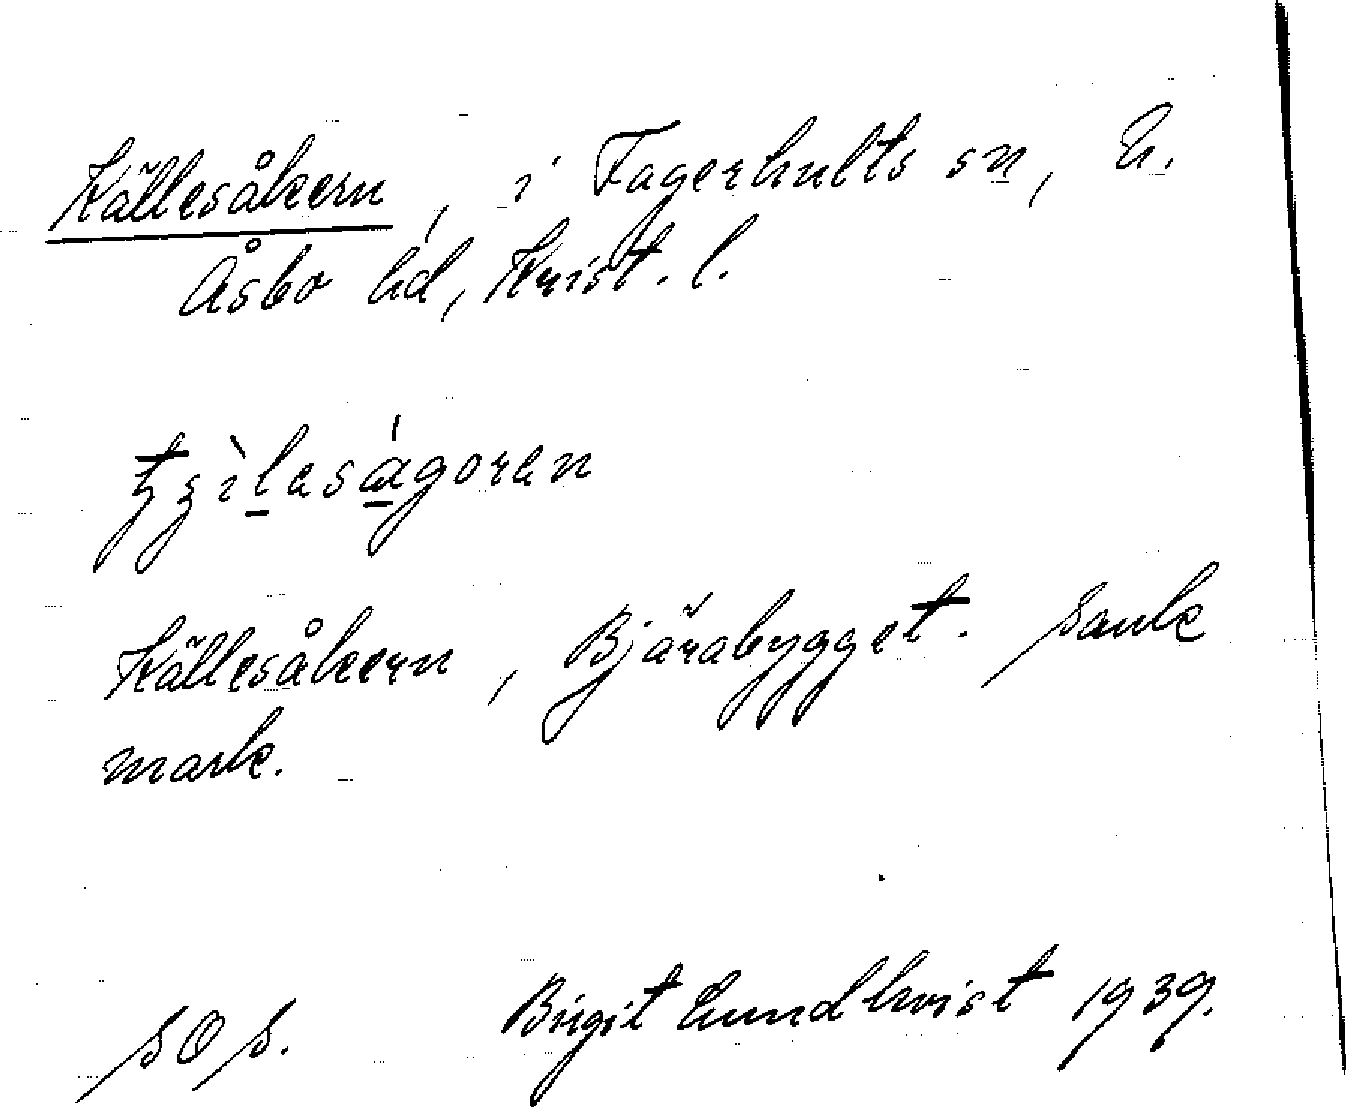 Källesåkern, i Fagerhults sn, N.
Åsbo hd, Krist. l.
Källesåkern, Bjärabygget. Sank
mark.
SOS. Birgit Lundkvist 1939.